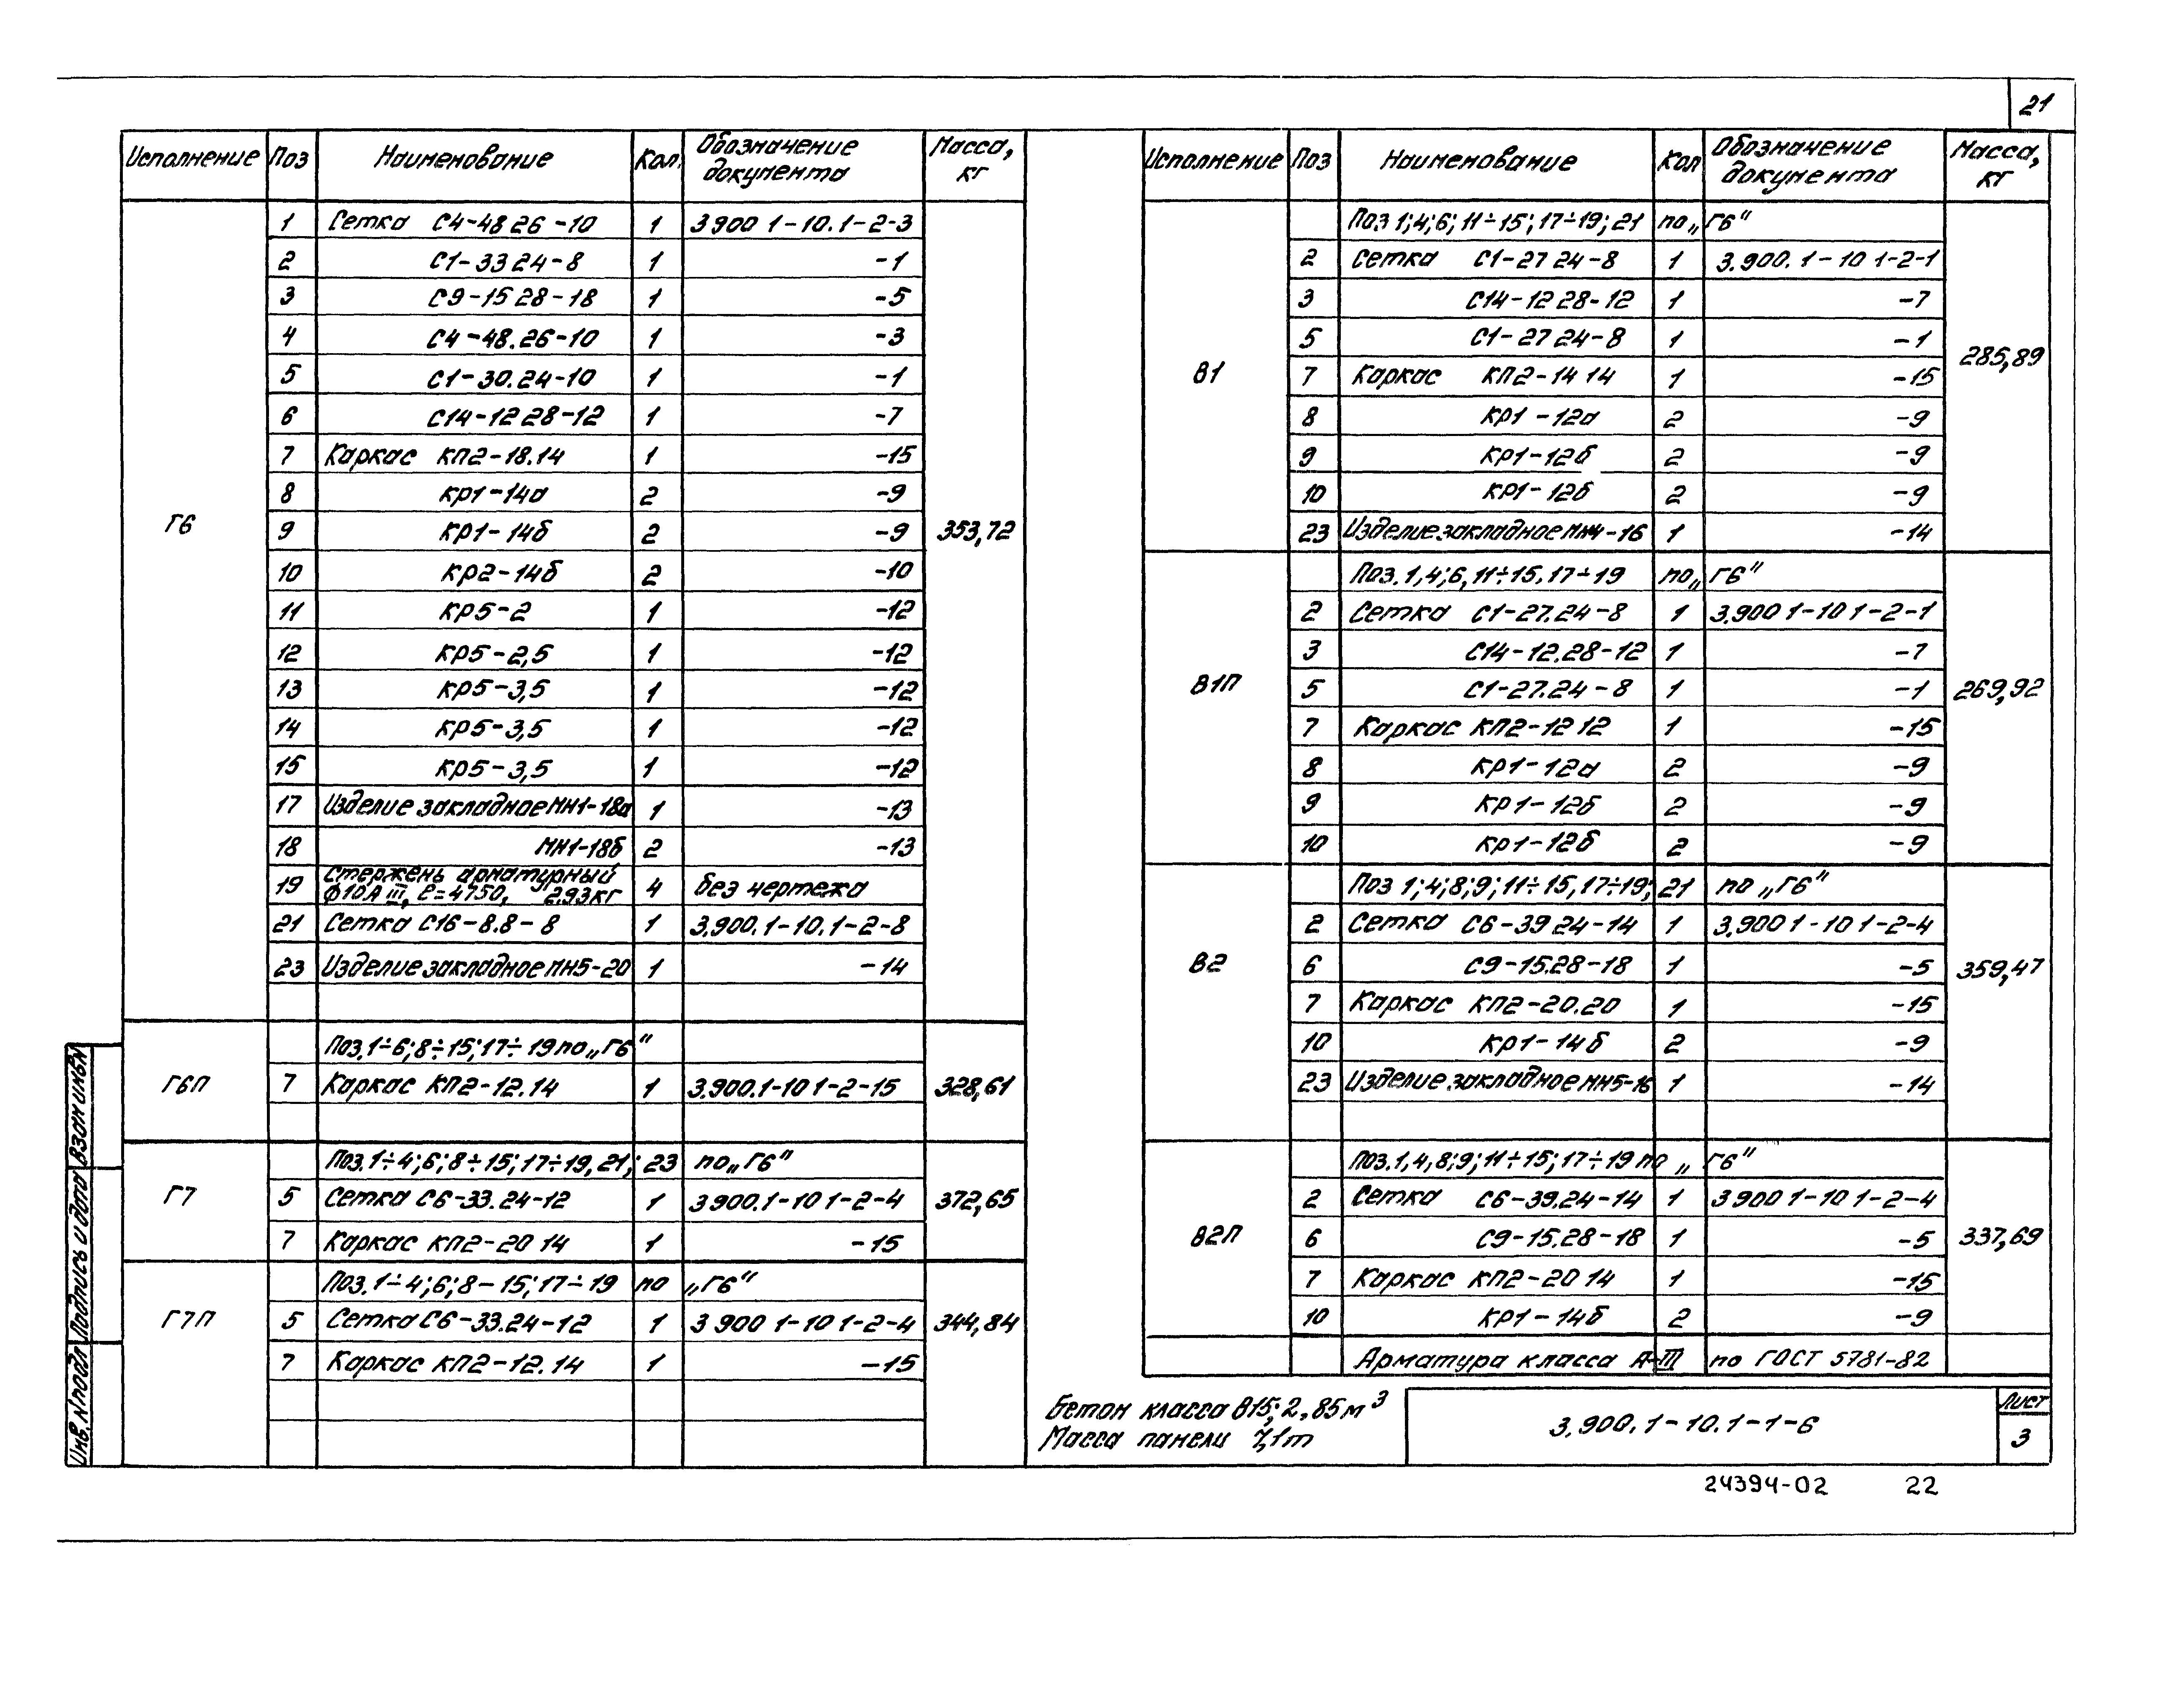 21
Исполнение Поз Наименование Кол. Обозначение документа Масса, кг
Г6 353,72
1 Сетка С4-48 26-10 1 3 900 1-10.1-2-3
2 С1-33 24-8 1 -1
3 С9-15 28-18 1 -5
4 С4-48.26-10 1 -3
5 С1-30.24-10 1 -1
6 С14-12 28-12 1 -7
7 Каркас КП2-18.14 1 -15
8 КР1-14а 2 -9
9 КР1-14б 2 -9
10 КР2-14б 2 -10
11 КР5-2 1 -12
12 КР5-2,5 1 -12
13 КР5-3,5 1 -12
14 КР5-3,5 1 -12
15 КР5-3,5 1 -12
17 Изделие закладное МН1-18а 1 -13
18 МН1-18б 2 -13
19 Стержень арматурный
ф10АIII, ℓ=4750, 2.93кг 4 без чертежа
21 Сетка С16-8.8-8 1 3.900.1-10.1-2-8
23 Изделие закладное МН5-20 1 -14
Г6П 328,61
Поз.1÷6;8÷15;17÷19 по „Г6"
7 Каркас КП2-12.14 1 3.900.1-10 1-2-15
Г7 372,65
Поз.1÷4;6;8÷15;17÷19,21; 23 по „Г6"
5 Сетка С6-33.24-12 1 3 900.1-10 1-2-4
7 Каркас КП2-20 14 1 -15
Г7П 344,84
Поз.1÷4;6;8-15;17÷19 по „Г6"
5 Сетка С6-33.24-12 1 3 900 1-10 1-2-4
7 Каркас КП2-12.14 1 -15
Исполнение Поз Наименование Кол Обозначение документа Масса, кг
В1 285,89
Поз 1;4;6;11÷15;17÷19;21 по „Г6"
2 Сетка С1-27 24-8 1 3.900.1-10 1-2-1
3 С14-12 28-12 1 -7
5 С1-27 24-8 1 -1
7 Каркас КП2-14 14 1 -15
8 КР1-12а 2 -9
9 КР1-12б 2 -9
10 КР1-12б 2 -9
23 Изделие закладное МН4-16 1 -14
В1П 269,92
Поз.1,4;6,11÷15.17÷19 по „Г6"
2 Сетка С1-27.24-8 1 3.900 1-10 1-2-1
3 С14-12.28-12 1 -7
5 С1-27.24-8 1 -1
7 Каркас КП2-12 12 1 -15
8 КР1-12а 2 -9
9 КР1-12б 2 -9
10 КР1-12б 2 -9
В2 359,47
Поз 1;4;8;9;11÷15,17÷19; 21 по „Г6"
2 Сетка С6-39 24-14 1 3.900 1-10 1-2-4
6 С9-15.28-18 1 -5
7 Каркас КП2-20.20 1 -15
10 КР1-14б 2 -9
23 Изделие закладное МН5-16 1 -14
В2П 337,69
Поз.1,4,8;9;11÷15;17÷19 по „Г6"
2 Сетка С6-39.24-14 1 3 900 1-10 1-2-4
6 С9-15.28-18 1 -5
7 Каркас КП2-20 14 1 -15
10 КР1-14б 2 -9
Арматура класса А-III по ГОСТ 5781-82
Бетон класса В15; 2,85м³
Масса панели 7,1т
3.900.1-10.1-1-6
Лист
3
24394-02 22
Взам инв N
Подпись и дата
Инв. N подл